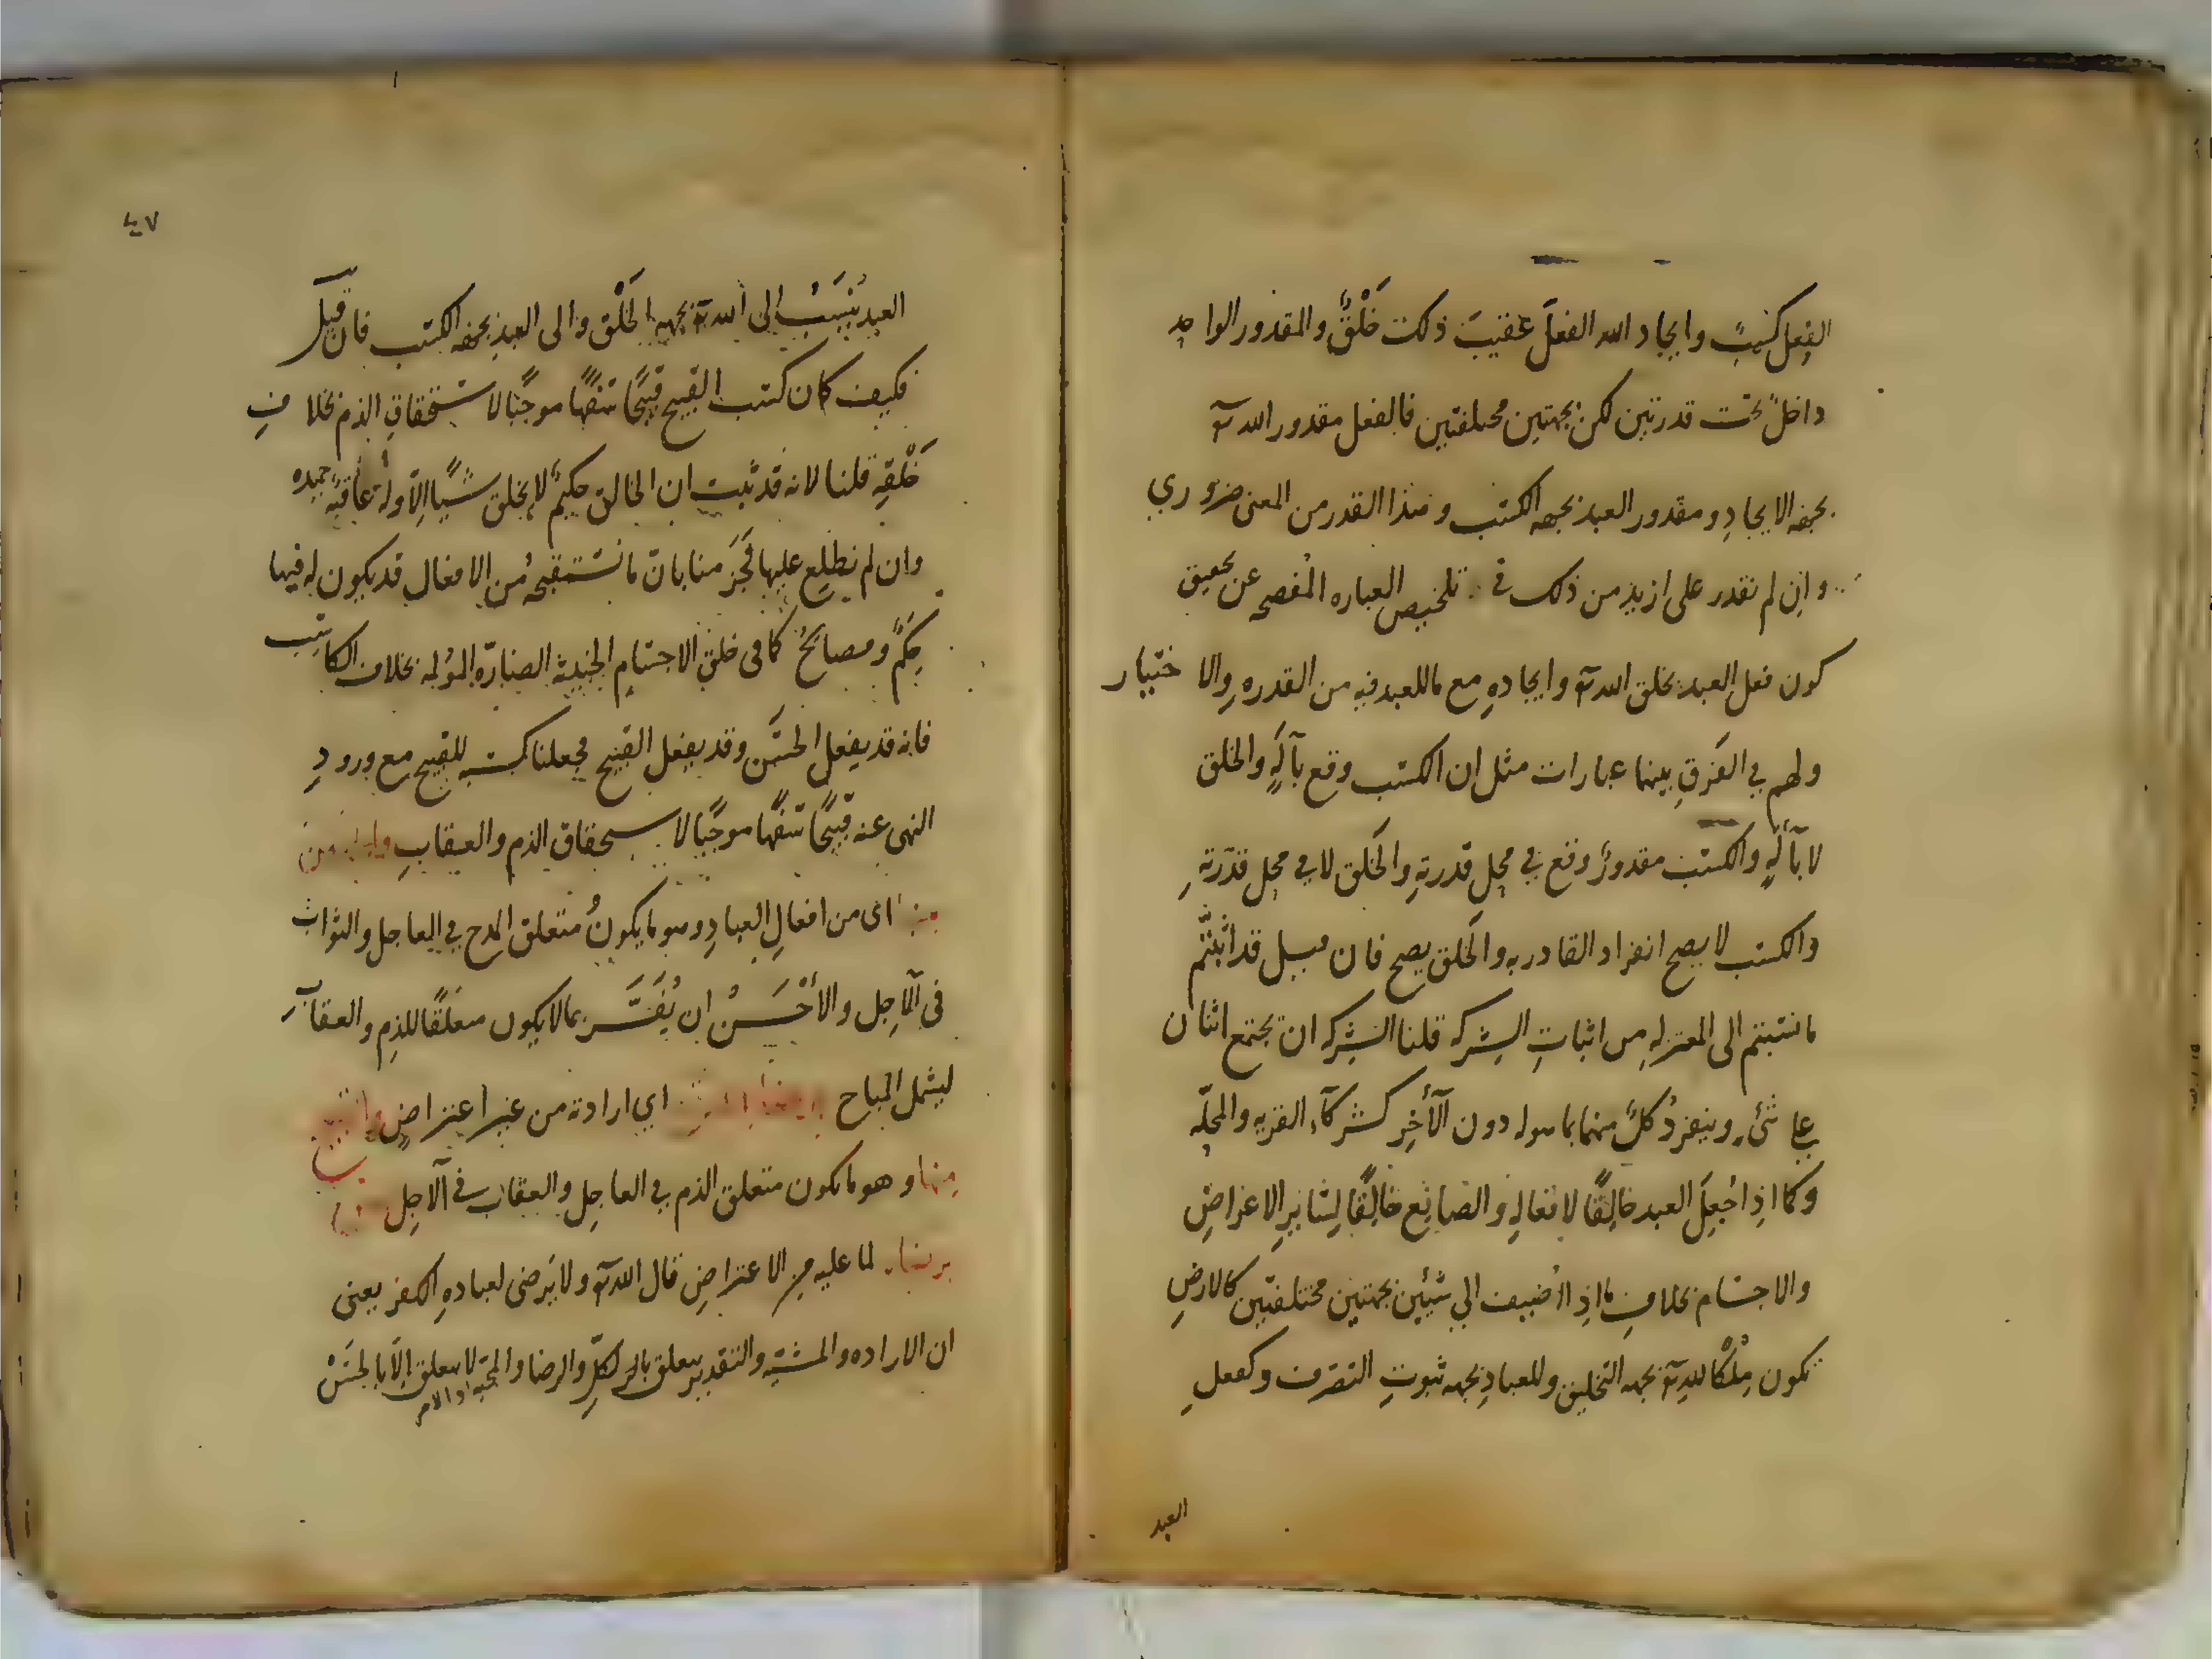 الفِعل كسْبٌ وايجاد الله الفعلَ عقيبَ ذلك خَلْقٌ والمقدور الواحد
داخلٌ تحت قدرتين لكن بجهتين مختلفتين فالفعل مقدور الله تعٓ
بجهه الايجادِ ومقدور العبد بجهه الكسب وهذا القدر من المعنى ضروري
وان لم نقدر على ازيد من ذلك في تلخيص العباره المُفصحه عن تحقيق
كون فعل العبد بخلق الله تعٓ وايجادهِ مع ماللعبد فيه من القدره والاختيار
ولهم في الفَرقِ بينهما عبارات مثل ان الكسب وقع بآلَهٍ والخلق
لا بآلَهٍ والكسب مقدورٌ وقع في محل قدرتهِ والخَلق لا في محل قدرَتهِ
والكسب لا يصح انفراد القادر به والخَلق يصح فان قيل قد اثبتّم
ما نسبتم الى المعتزله من اثباتِ الشركه قلنا الشركه ان يجتمع اثنان
على شئ وينفردُ كلٌّ منهما بما هو له دون الآخِر كشركآء القريه والمحلّه
وكما اذا جُعِلَ العبد خالِقًا لافعالهِ والصانِع خالِقًا لِسَايرِ الاعراضِ
والاجسام بخلافِ ما اذا اُضيف الي شيئين بجهتين مختلفتين كالارضِ
تكون مِلْكًا للهِ تعٓ بجهه التخليق وللعبادِ بجهه ثبوتِ التصَرف وكفعلِ
العبد
٤٧
العبد يُنْسَبُ الى الله تعٓ بجهه الخَلْق والى العبد بجهه الكسب فان قيلَ
فكيف كان كسب القبيح قبيحًا سَفهًا موجبًا لاستحقاقِ الذم بخلافِ
خَلْقهِ قلنا لانه قد ثبت ان الخالق حكيمٌ لا يخلق شيًا الّا وله عاقبهٌ حميده
وان لم نطلع عليها فجَزَمنا بانّ ما نستقبحهُ من الافعال قد يكون له فيها
حِكَمٌ ومصالحُ كما في خلق الاجسَامِ الخبيثه الضارّه المؤلمه بخلاف الكاسب
فانه قد يفعل الحسَن وقد يفعل القبيح فجعلنا كسبه للقبيح مع ورودِ
النهى عنه قبيحًا سَفهًا موجبًا لاستحقاق الذم والعقابِ والحسن
منها اى من افعالِ العبادِ وهو ما يكونُ متعلق المدح في العاجل والثواب
في الآجِل والأحْسَنُ ان يُفَسَّر بما لا يكون متعلقًا للذمِ والعقاب
ليشمل المباح برضا الله تعٓ اي ارادته من غير اعتراضٍ والقبيح
منها وهو ما يكون متعلق الذم في العاجِل والعقاب في الآجِل ليس
برضاه لما عليه من الاعتراضِ قال الله تعٓ ولا يَرضى لعبادهِ الكفر يعنى
ان الاراده والمشيّه والتقدير يتعلق بالكلِّ والرضا والمحبّه والامر لا يتعلق الّا بالحسَنْ